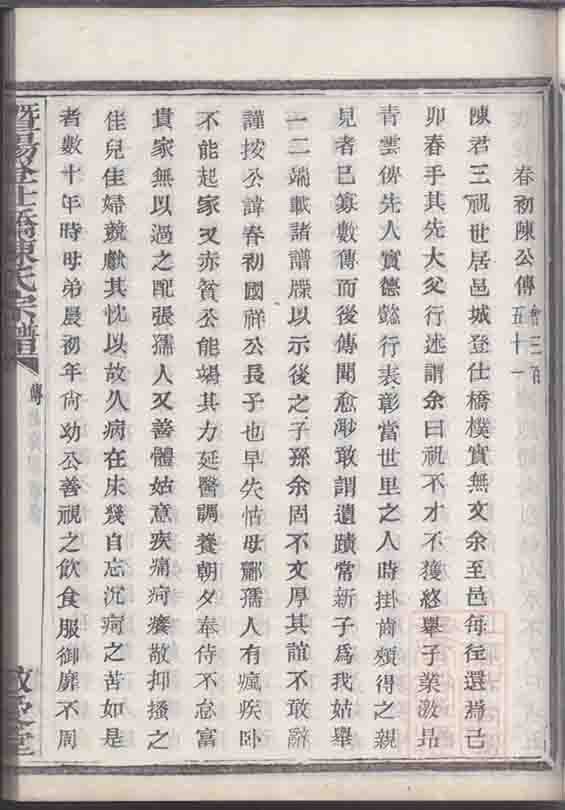 春初陳公傳 會三百五十一
陳君三祝世居邑城登仕橋樸實無文余至邑每徃還焉己
卯春手其先大父行述謂余曰祝不才不獲終舉子業激昂
青雲俾先人實德懿行表彰當世里之人時掛齒頰得之親
見者已寡數傳而後傳聞愈尠敢謂遺蹟常新子爲我姑舉
一二端載諸譜牒以示後之子孫余固不文厚其誼不敢辭
謹按公諱春初國祥公長子也早失怙母酈孺人有瘋疾卧
不能起家又赤貧公能竭其力延醫調養朝夕奉侍不怠富
貴家無以過之配張孺人又善體姑意疾痛疴癢敬抑搔之
佳兒佳婦兢獻其忱以故久病在床幾自忘沉疴之苦如是
者數十年時母弟晨初年尙幼公善視之飲食服御靡不周
暨陽登仕橋陳氏宗譜
傳